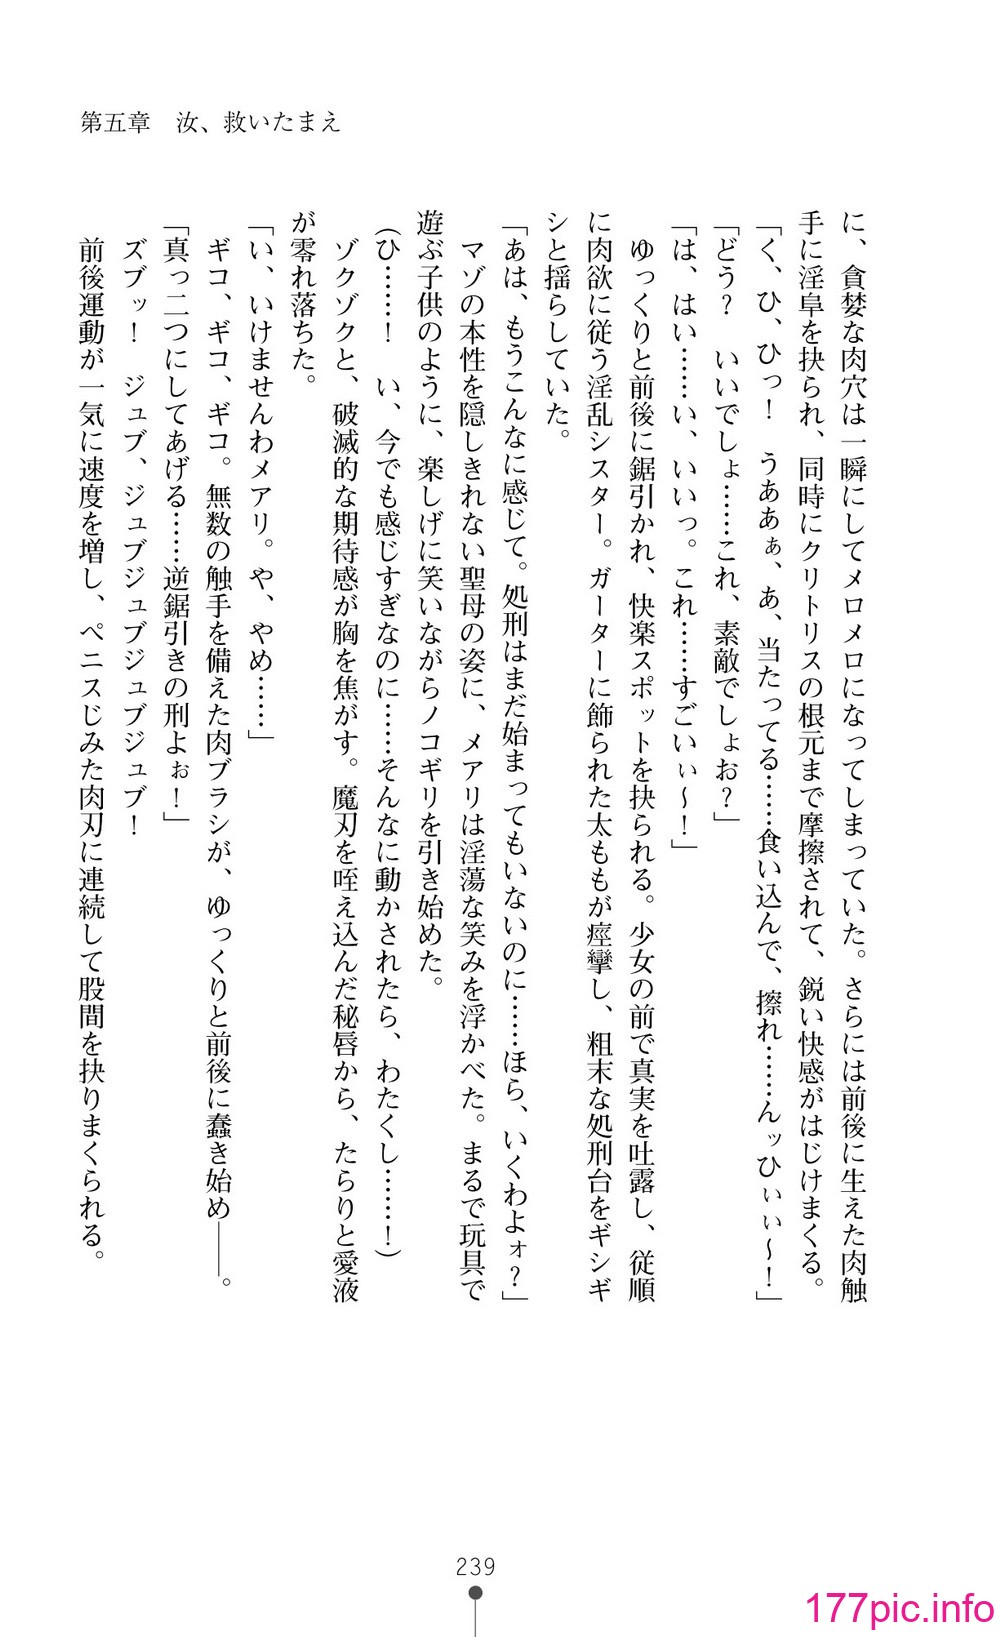 第五章　汝、救いたまえ
に、貪婪な肉穴は一瞬にしてメロメロになってしまっていた。さらには前後に生えた肉触
手に淫阜を抉られ、同時にクリトリスの根元まで摩擦されて、鋭い快感がはじけまくる。
「く、ひ、ひっ！　うああぁ、あ、当たってる……食い込んで、擦れ……んッひぃぃ～！」
「どう？　いいでしょ……これ、素敵でしょお？」
「は、はい……い、いいっ。これ……すごいぃ～！」
　ゆっくりと前後に鋸引かれ、快楽スポットを抉られる。少女の前で真実を吐露し、従順
に肉欲に従う淫乱シスター。ガーターに飾られた太ももが痙攣し、粗末な処刑台をギシギ
シと揺らしていた。
「あは、もうこんなに感じて。処刑はまだ始まってもいないのに……ほら、いくわよォ？」
　マゾの本性を隠しきれない聖母の姿に、メアリは淫蕩な笑みを浮かべた。まるで玩具で
遊ぶ子供のように、楽しげに笑いながらノコギリを引き始めた。
（ひ……！　い、今でも感じすぎなのに……そんなに動かされたら、わたくし……！）
　ゾクゾクと、破滅的な期待感が胸を焦がす。魔刃を咥え込んだ秘唇から、たらりと愛液
が零れ落ちた。
「い、いけませんわメアリ。や、やめ……」
　ギコ、ギコ、ギコ。無数の触手を備えた肉ブラシが、ゆっくりと前後に蠢き始め――。
「真っ二つにしてあげる……逆鋸引きの刑よぉ！」
　ズブッ！　ジュブ、ジュブジュブジュブジュブ！
　前後運動が一気に速度を増し、ペニスじみた肉刃に連続して股間を抉りまくられる。
239
177pic.info